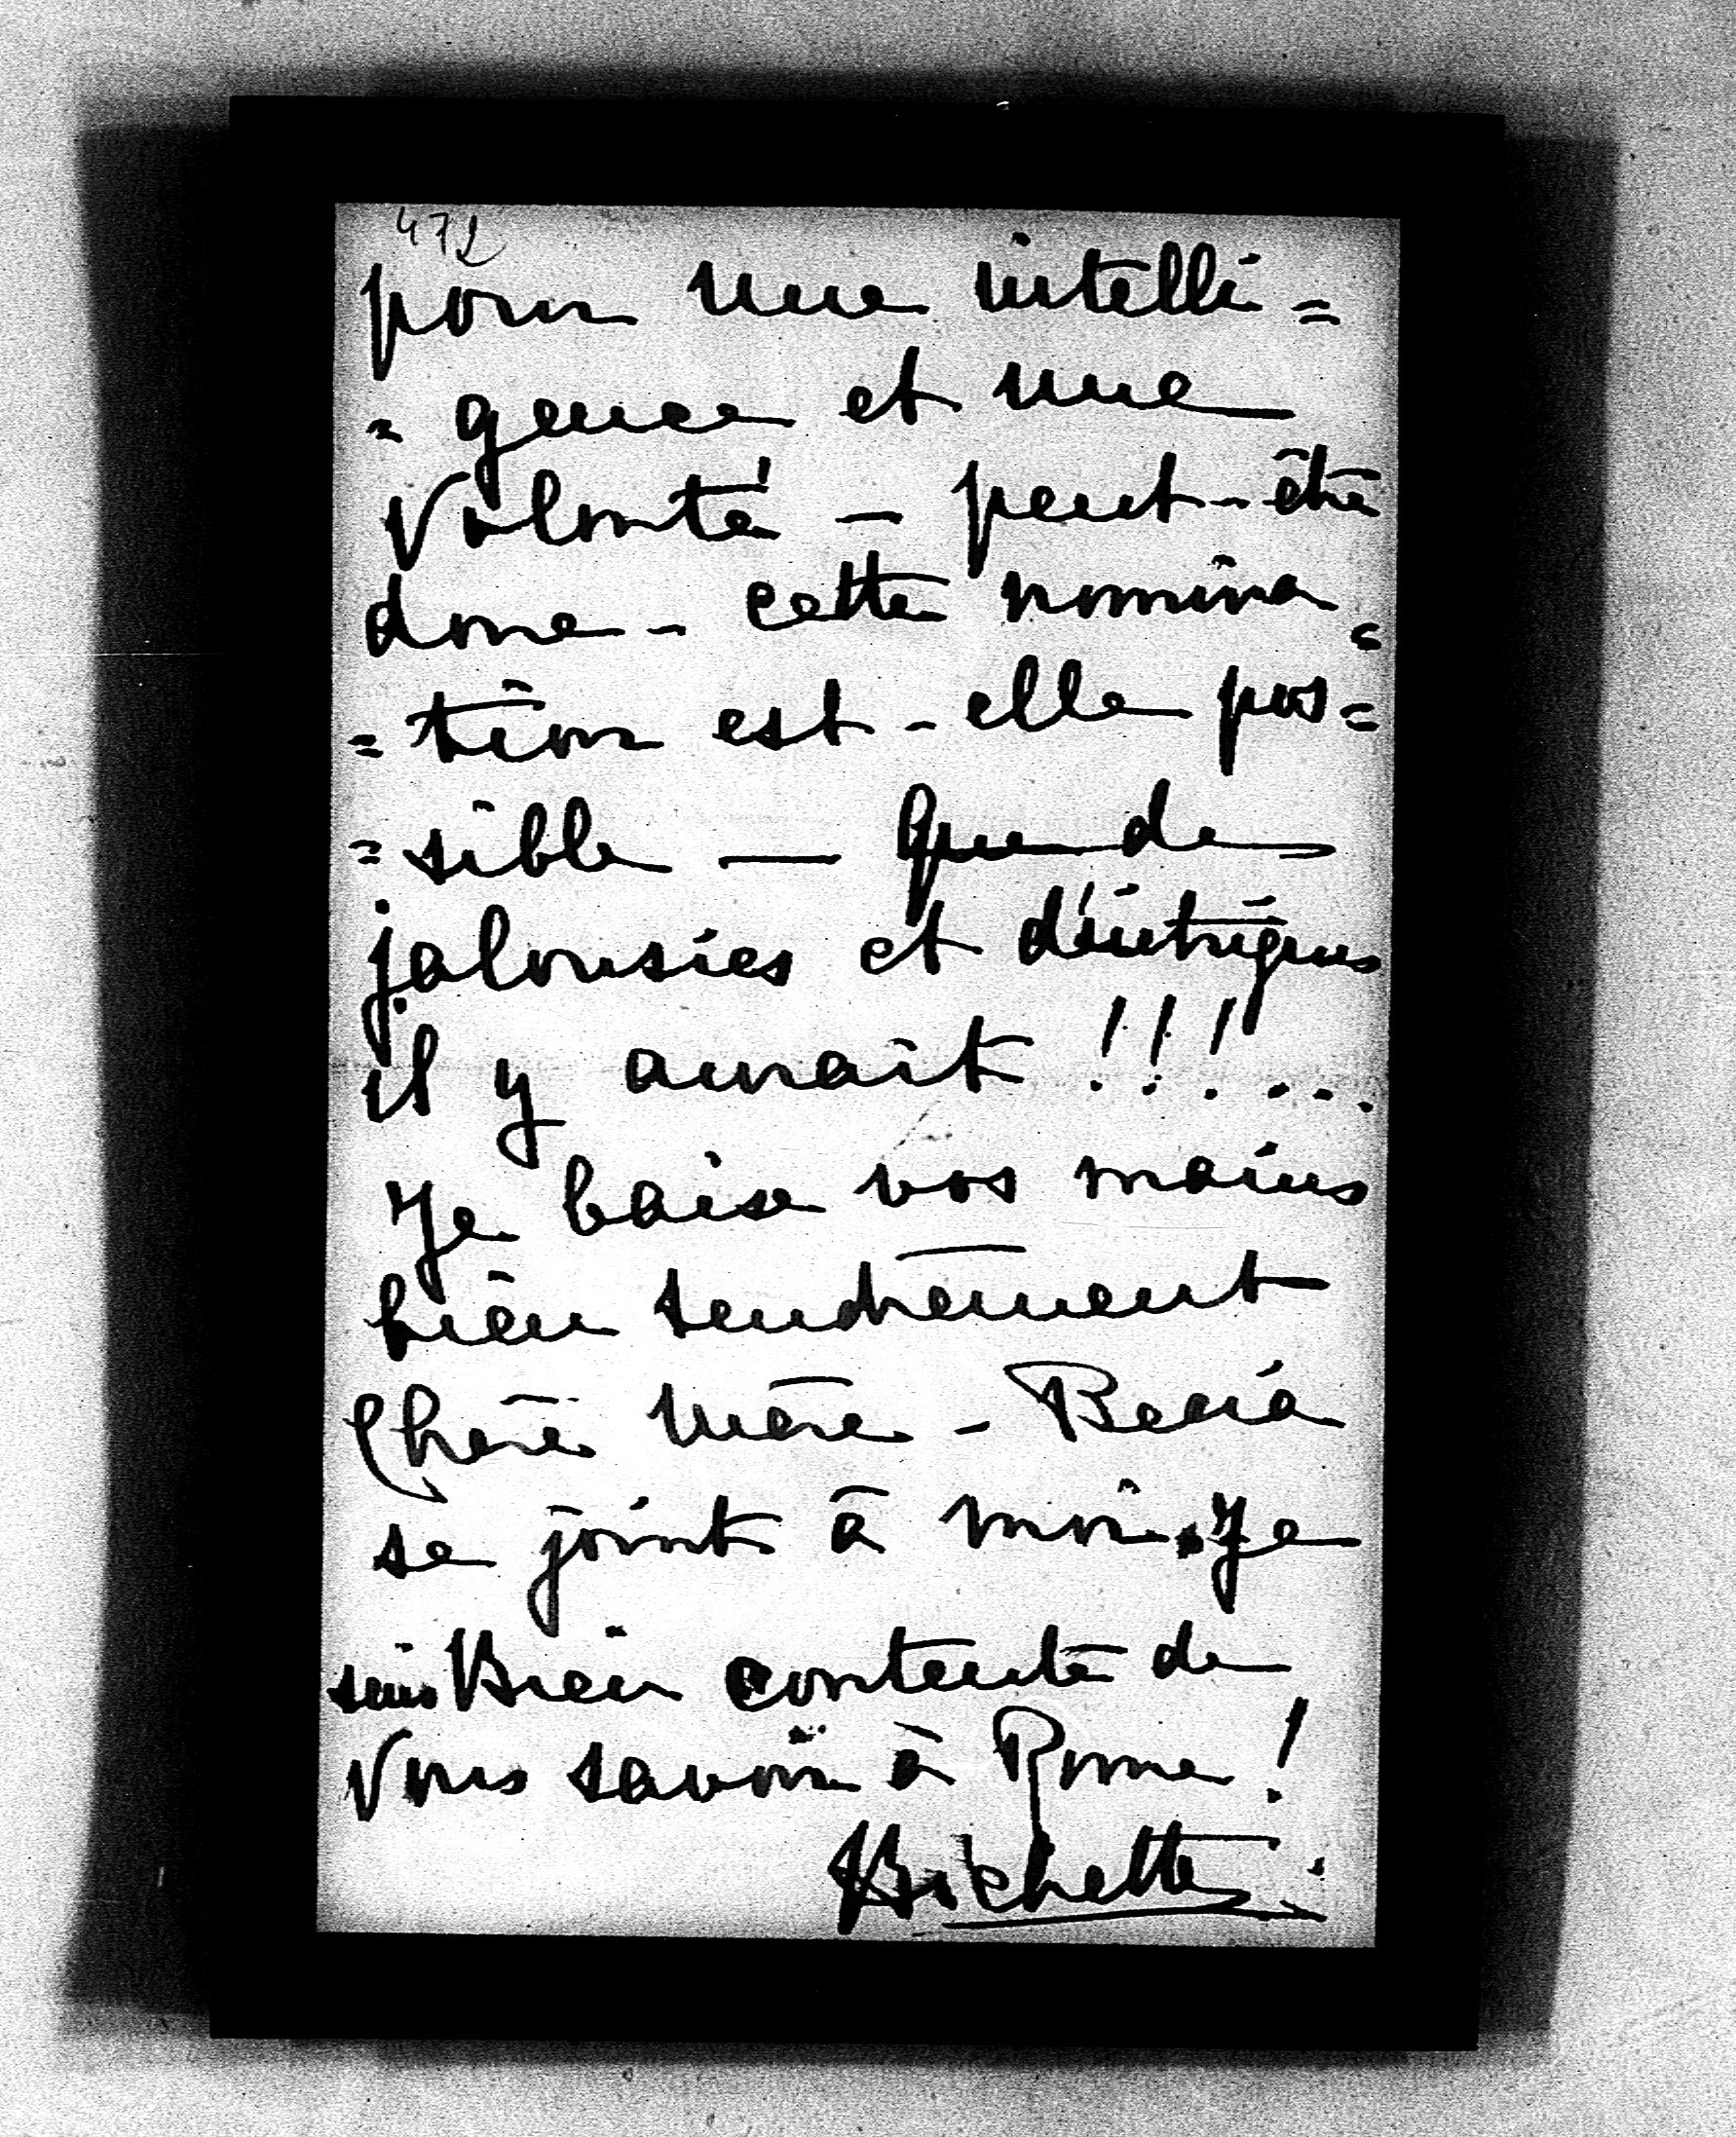 472
pour une intelli=
=gence et une
Volonté — peut-être
donc - cette nomina=
=tion est-elle pos=
=sible — que de
jalousies et d'intrigues
il y aurait !!!...
Je baise vos mains
bien tendrement
Chère Mère -
se joint à moi. Je
suis bien contente de
Vous savoir à Rome !
Bichette